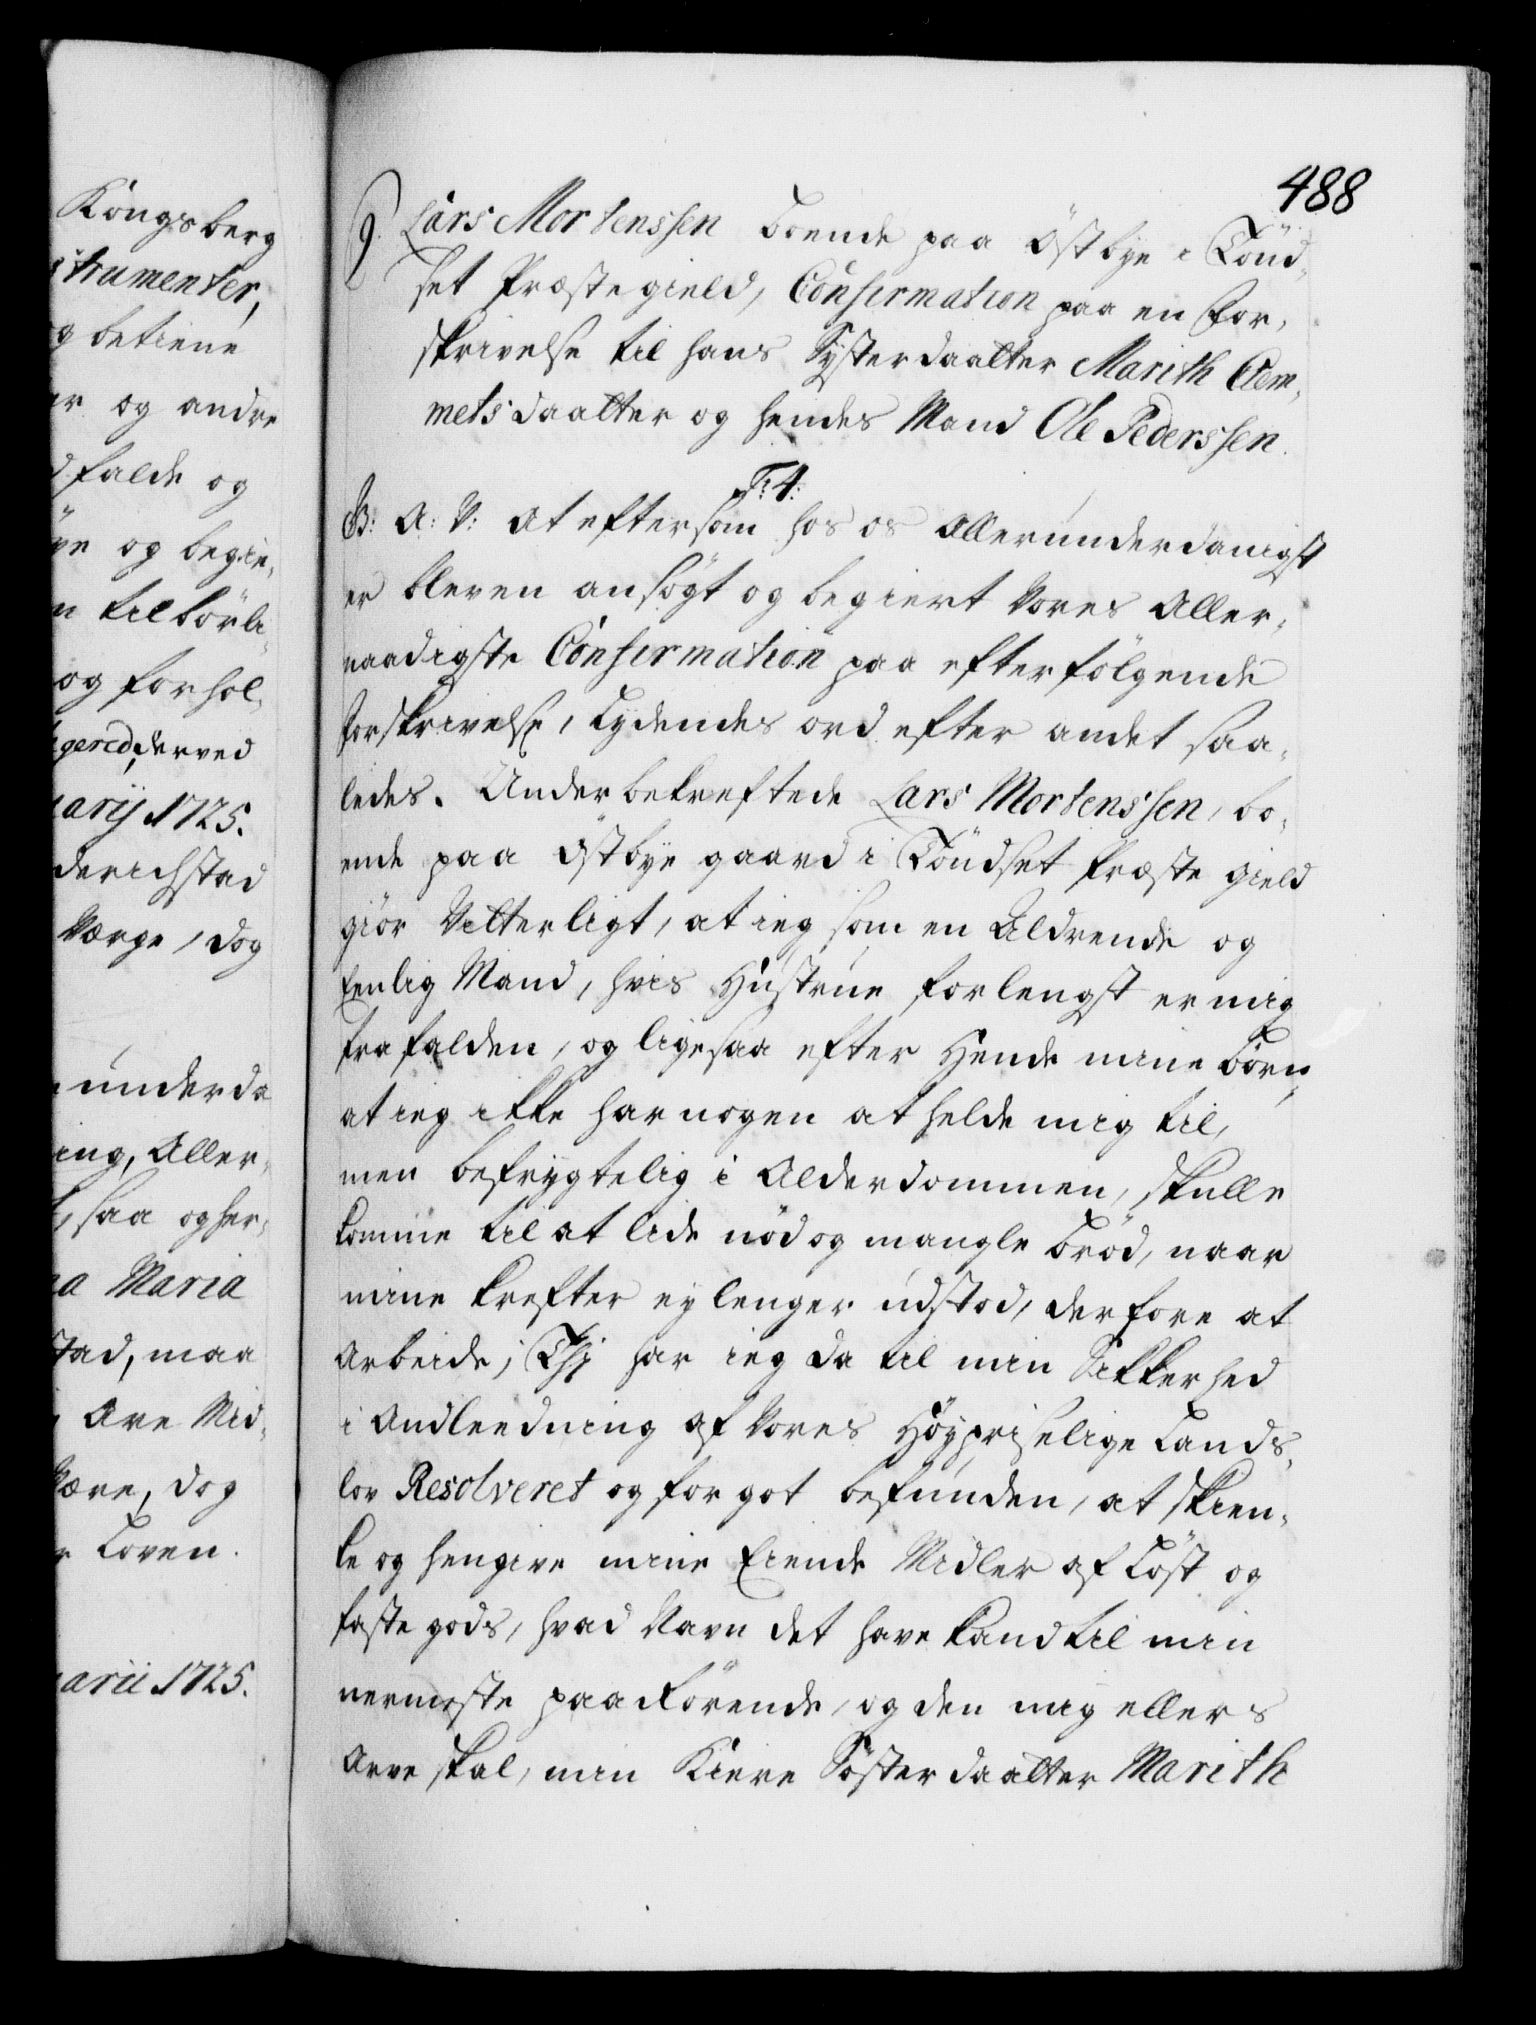 Kongsberg
strumenter,
g betiene
er og andre
dfalde og
ye og begie,
n tilbörli,
og forhol,
gered, derved
arij 1725.
derichstad
Værge, dog
underda
ing, Aller,
saa og her,
a Maria
stad, maa
Are Mid,
Være, dog
Loven.
arii 1725.
488
9. Lars Mortenssen boende paa Östbye i Tönd,
set Præstegield, Confirmation paa en For,
skrivelse til hans Systerdaatter Marith Clem,
metsdaatter og hendes Mand Ole Pederssen.
F: 4:
G: A: V: At eftersom hos os Allerunderdanigst
er bleven ansögt og begiert Vores Aller,
naadigste Confirmation paa efterfölgende
forskrivelse, Lydendes ord efter andet saa,
ledes. Underbekreftede Lars Mortenssen, bo,
ende paa Östbye gaard i Töndset Præste gield
giör Vitterligt, at ieg som en Aldrende og
Eenlig Mand, hvis Hustrue forlengst er mig
frafalden, og ligesaa efter Hende mine Börn,
at ieg ikke har nogen at helde mig til,
men befrygtelig i Alderdommen, skulle
komme til at lide nöd og mangle Bröd, naar
mine krefter ey lenger udstod, derfore at
Arbeide; Thj har ieg da til min Sikkerhed
i Andleedning af Vores Höypriselige Lands,
lov Resolveret og for got befunden, at skien,
ke og hengive mine Eiende Midler af Löst og
faste gods, hvad Navn det have kand til min
nermeste paarörende, og den mig ellers
Arve skal, min Kiere Sösterdaatter Marith